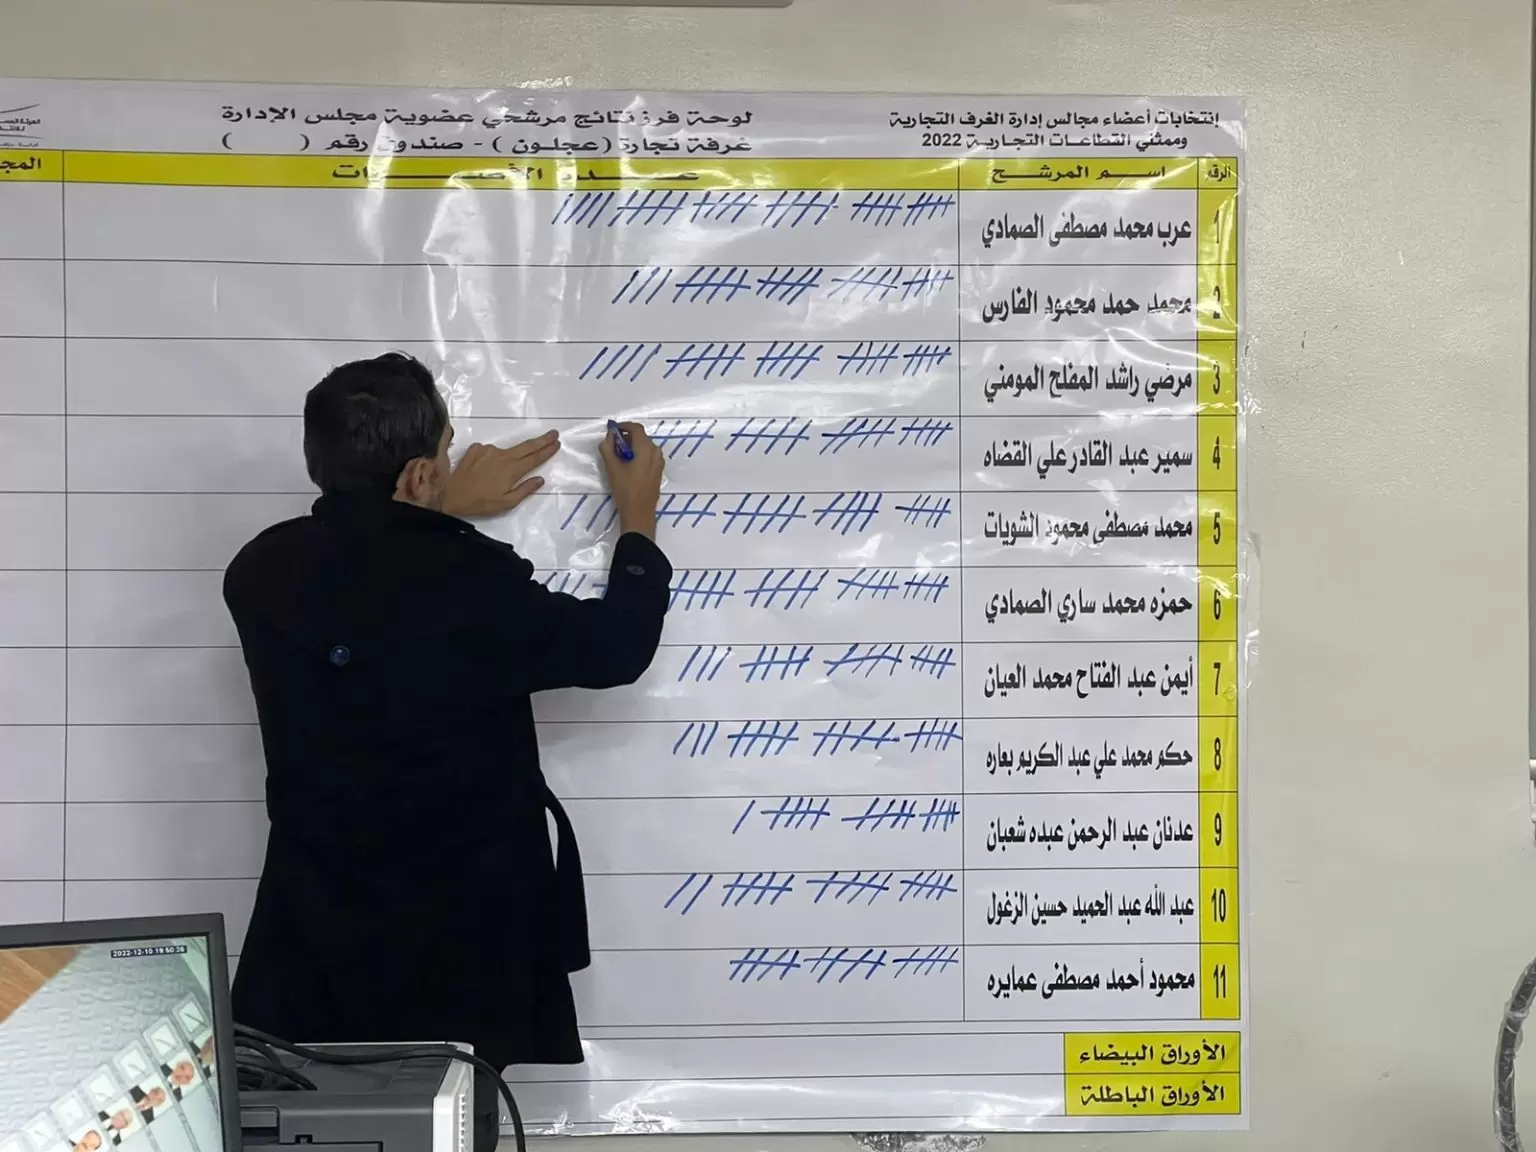 إنتخابات أعضاء مجالس إدارة الغرف التجارية
وممثلي القطاعات التجارية 2022
لوحة فرز نتائج مرشحي عضوية مجلس الإدارة
غرفة تجارة (عجلون) - صندوق رقم ( )
الرقم اسم المرشح عدد الأصوات المجـ
1 عرب محمد مصطفى الصمادي
2 محمد حمد محمود الفارس
3 مرضي راشد المفلح المومني
4 سمير عبد القادر علي القضاه
5 محمد مصطفى محمود الشويات
6 حمزه محمد ساري الصمادي
7 أيمن عبد الفتاح محمد العيان
8 حكم محمد علي عبد الكريم بعاره
9 عدنان عبد الرحمن عبده شعبان
10 عبد الله عبد الحميد حسين الزغول
11 محمود أحمد مصطفى عمايره
الأوراق البيضاء
الأوراق الباطلة
2022-12-10